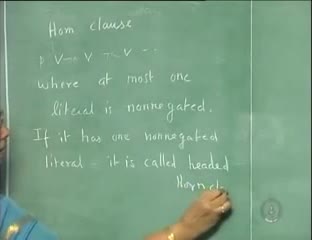 Horn clause
p V ¬ V ¬ V ..
where at most one
literal is nonnegated.
If it has one nonnegated
literal - it is called headed
Horn cl